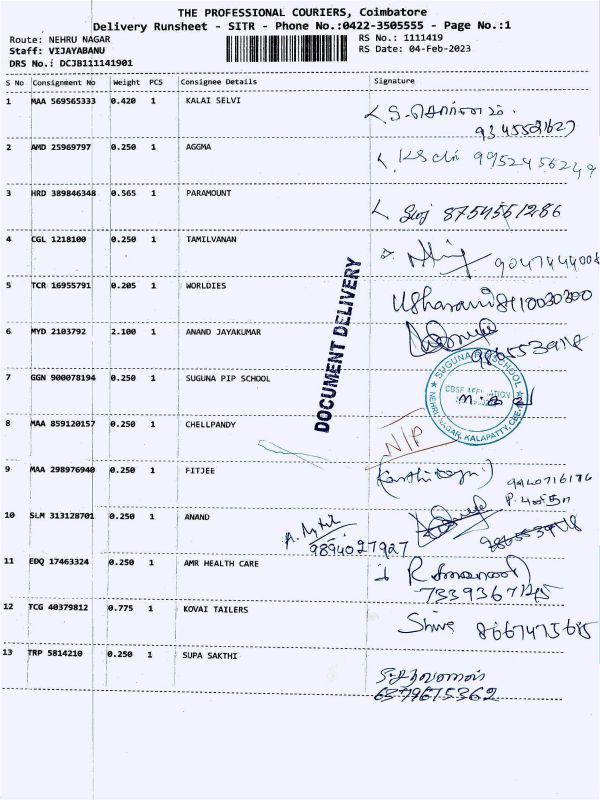 THE PROFESSIONAL COURIERS, Coimbatore
Delivery Runsheet - SITR - Phone No.:0422-3505555 - Page No.:1
Route: NEHRU NAGAR
RS No.: 1111419
Staff: VIJAYABANU
RS Date: 04-Feb-2023
DRS No.: DCJB111141901
S No Consignment No Weight PCS Consignee Details Signature
1 MAA 569565333 0.420 1 KALAI SELVI
2 AMD 25969797 0.250 1 AGGMA 9952456249
3 HRD 389846348 0.565 1 PARAMOUNT 8754551286
4 CGL 1218100 0.250 1 TAMILVANAN
5 TCR 16955791 0.205 1 WORLDIES
6 MYD 2103792 2.100 1 ANAND JAYAKUMAR
DOCUMENT DELIVERY
7 GGN 900078194 0.250 1 SUGUNA PIP SCHOOL
SUGUNA PIP SCHOOL
CBSE AFFILIATION
NEHRU NAGAR, KALAPATTY, CBE
8 MAA 859120157 0.250 1 CHELLPANDY N/P
9 MAA 298976940 0.250 1 FITJEE 9940716176
10 SLM 313128701 0.250 1 ANAND
9894027927
11 EDQ 17463324 0.250 1 AMR HEALTH CARE
7339367145
12 TCG 40379812 0.775 1 KOVAI TAILERS Shiva 8667475685
13 TRP 5814210 0.250 1 SUPA SAKTHI
6379675362